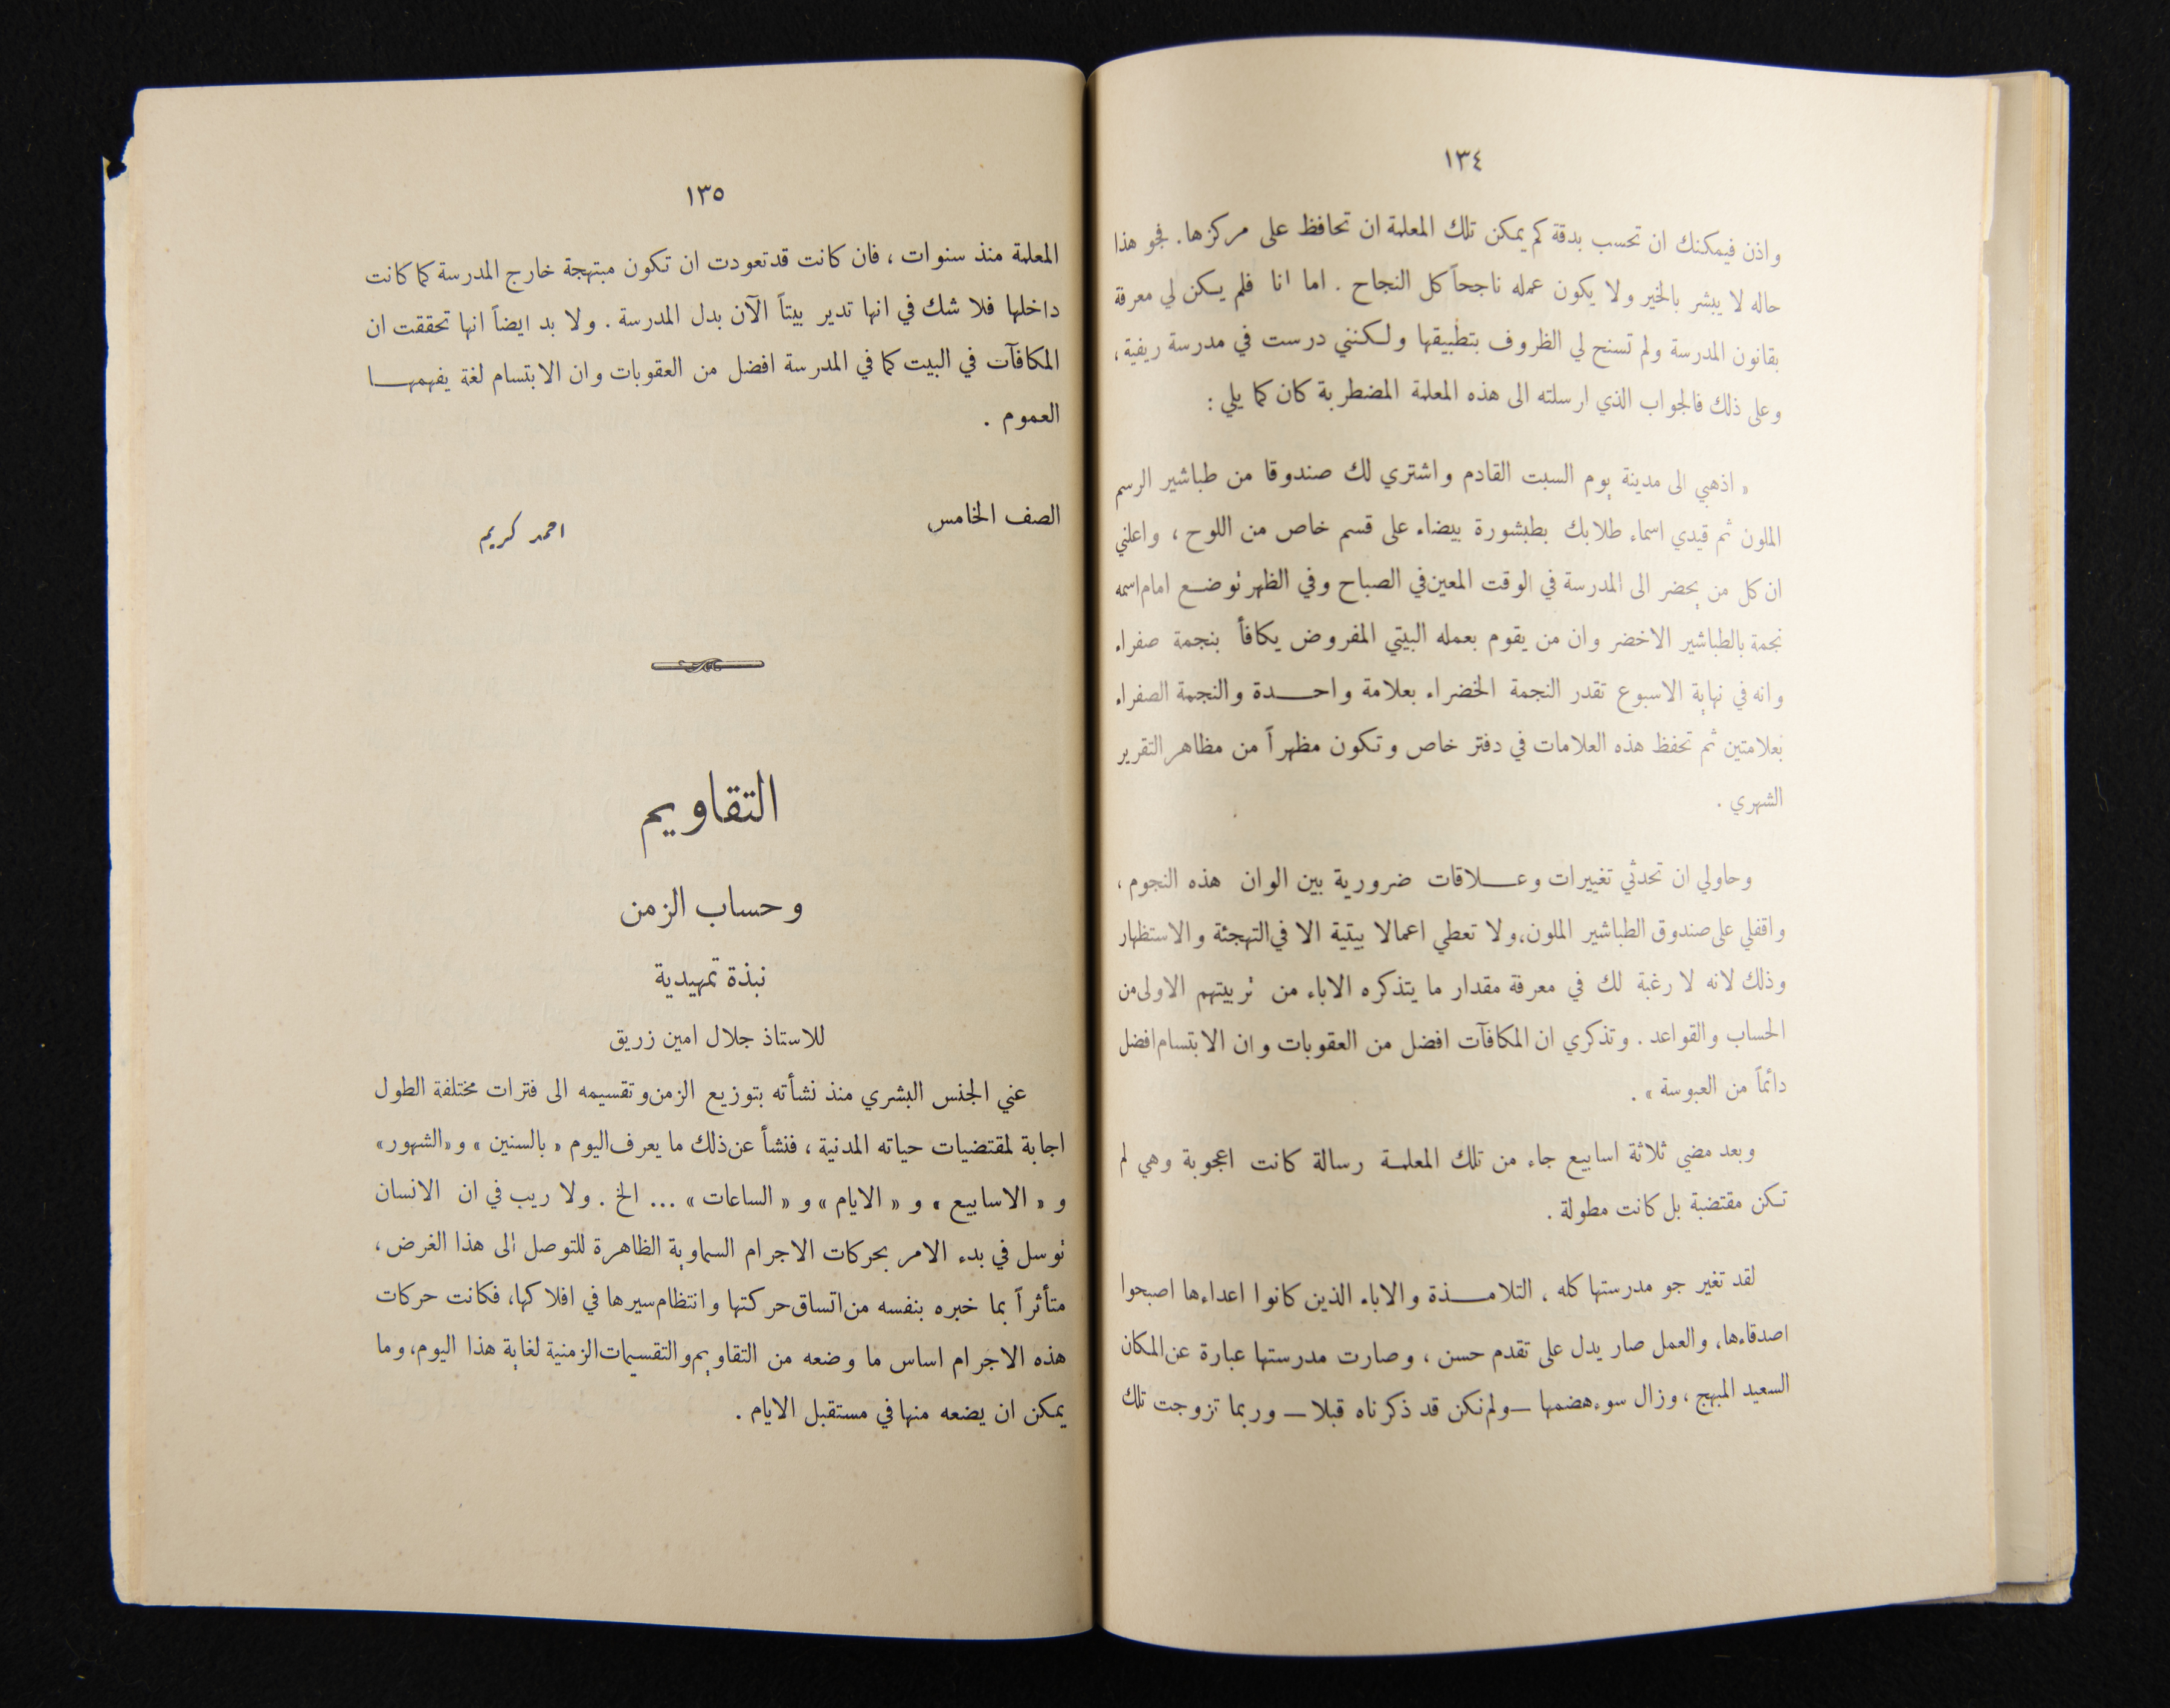 ١٣٤
واذن فيمكنك ان تحسب بدقة كم يمكن تلك المعلمة ان تحافظ على مركزها. فجو هذا
حاله لا يبشر بالخير ولا يكون عمله ناجحاً كل النجاح . اما انا فلم يكن لي معرفة
بقانون المدرسة ولم تسنح لي الظروف بتطبيقها ولكنني درست في مدرسة ريفية ،
وعلى ذلك فالجواب الذي ارسلته الى هذه المعلمة المضطربة كان كما يلي :
« اذهبي الى مدينة يوم السبت القادم واشتري لك صندوقا من طباشير الرسم
الملون ثم قيدي اسماء طلابك بطبشورة بيضاء على قسم خاص من اللوح ، واعلني
ان كل من يحضر الى المدرسة في الوقت المعين في الصباح وفي الظهر توضع امام اسمه
نجمة بالطباشير الاخضر وان من يقوم بعمله البيتي المفروض يكافأ بنجمة صفراء
وانه في نهاية الاسبوع تقدر النجمة الخضراء بعلامة واحدة والنجمة الصفراء
بعلامتين ثم تحفظ هذه العلامات في دفتر خاص وتكون مظهراً من مظاهر التقرير
الشهري .
وحاولي ان تحدثي تغييرات وعلاقات ضرورية بين الوان هذه النجوم ،
واقفلي على صندوق الطباشير الملون، ولا تعطي اعمالا بيتية الا في التهجئة والاستظهار
وذلك لانه لا رغبة لك في معرفة مقدار ما يتذكره الاباء من تربيتهم الاولى من
الحساب والقواعد . وتذكري ان المكافآت افضل من العقوبات وان الابتسام افضل
دائماً من العبوسة » .
وبعد مضي ثلاثة اسابيع جاء من تلك المعلمة رسالة كانت اعجوبة وهي لم
تكن مقتضبة بل كانت مطولة .
لقد تغير جو مدرستها كله ، التلامذة والاباء الذين كانوا اعداءها اصبحوا
اصدقاءها، والعمل صار يدل على تقدم حسن ، وصارت مدرستها عبارة عن المكان
السعيد المبهج ، وزال سوء هضمها — ولم نكن قد ذكرناه قبلا — وربما تزوجت تلك
١٣٥
المعلمة منذ سنوات ، فان كانت قد تعودت ان تكون مبتهجة خارج المدرسة كما كانت
داخلها فلا شك في انها تدير بيتاً الآن بدل المدرسة . ولا بد ايضاً انها تحققت ان
المكافآت في البيت كما في المدرسة افضل من العقوبات وان الابتسام لغة يفهمها
العموم .
الصف الخامس
احمد كريم
التقاويم
وحساب الزمن
نبذة تمهيدية
للاستاذ جلال امين زريق
عني الجنس البشري منذ نشأته بتوزيع الزمن وتقسيمه الى فترات مختلفة الطول
اجابة لمقتضيات حياته المدنية ، فنشأ عن ذلك ما يعرف اليوم « بالسنين » و «الشهور»
و « الاسابيع » و « الايام » و « الساعات » ... الخ . ولا ريب في ان الانسان
توسل في بدء الامر بحركات الاجرام السماوية الظاهرة للتوصل الى هذا الغرض ،
متأثراً بما خبره بنفسه من اتساق حركتها وانتظام سيرها في افلاكها، فكانت حركات
هذه الاجرام اساس ما وضعه من التقاويم والتقسيمات الزمنية لغاية هذا اليوم، وما
يمكن ان يضعه منها في مستقبل الايام .